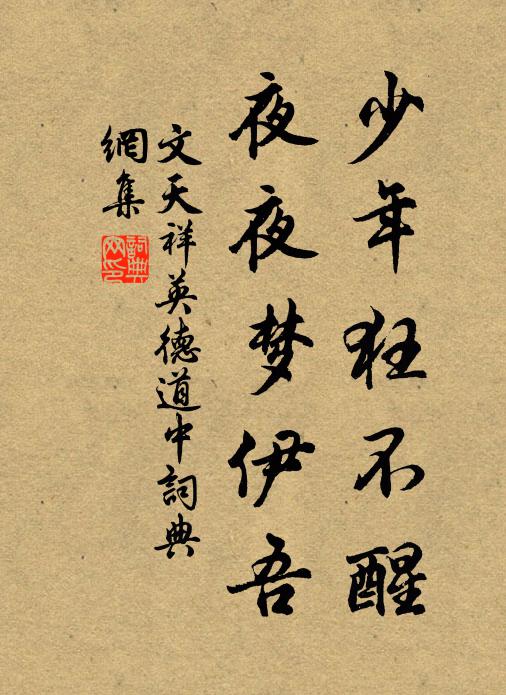 少年狂不醒
夜夜梦伊吾
文天祥英德道中詞典
網集
詞典
网印